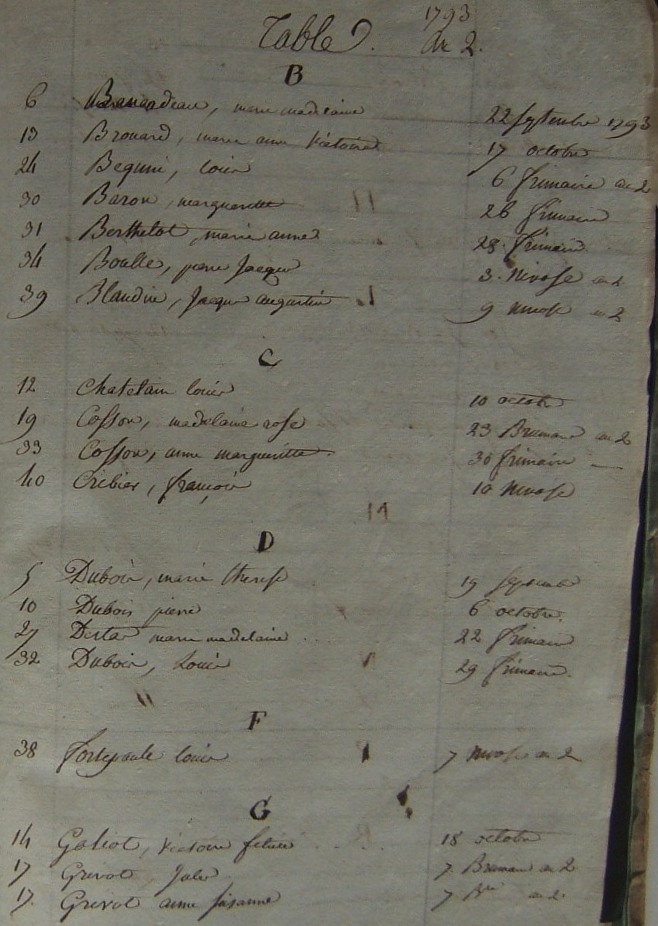 1793
Table. an 2.
B
6 marie madelaine 22 Septembre 1793
13 Brouard, marie anne victoire 17 octobre
24 Beguin, louis 6 frimaire an 2
30 Baron, margueritte 26 frimaire
31 Berthelot, marie anne 28 frimaire
34 Boulle, pierre Jacque 3 Nivose an 2
39 Blandin, Jacque augustin 9 nivose an 2
C
12 Chatelain louis 10 octobre
19 Cosson, madelaine rose 23 Brumaire an 2
33 Cosson, anne margueritte 30 frimaire
40 Cribier, françois 10 nivose
D
5 Dubois, marie therese 19 septembre
10 Dubois pierre 6 octobre
27 marie madelaine 22 frimaire
32 Dubois, Louis 29 frimaire
F
38 louis 7 nivose an 2
G
14 Galiot, victoire 18 octobre
17 Grevot, 7 Brumaire an 2
17 Grevot anne susanne 7 Bre an 2